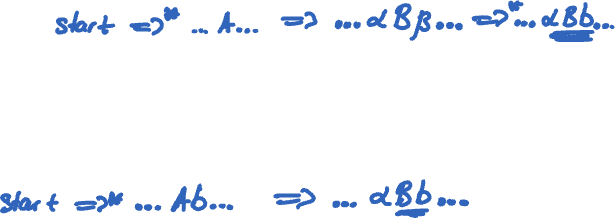 start ⇒* ... A... ⇒ ...αBβ... ⇒* ...αBb...
start ⇒* ... Ab... ⇒ ... αBb...